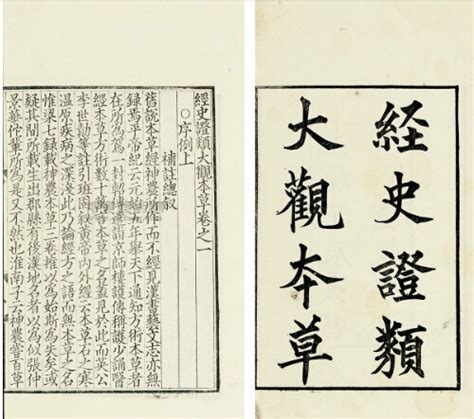 経史證類
大觀夲草
經史證類大觀本草卷之一
○序例上
補註總敘
舊說本草經神農所作而不經見漢書藝文志亦無
録焉平帝紀云元始五年舉天下通知方術本草者
在所為駕一封軺傳遣詣京師樓護傳稱護少誦醫
經本草方術數十萬言本草之名蓋見於此而英公
李世勣等註引班固敘黃帝內外經云本草石之寒
温原疾病之深淺此乃論經方之語而無本草之名
惟梁七録載神農本草三卷推以為始斯為失矣或
疑其間所載生出郡縣有後漢地名者以為似張仲
景華佗輩所為是又不然也淮南子云神農嘗百草